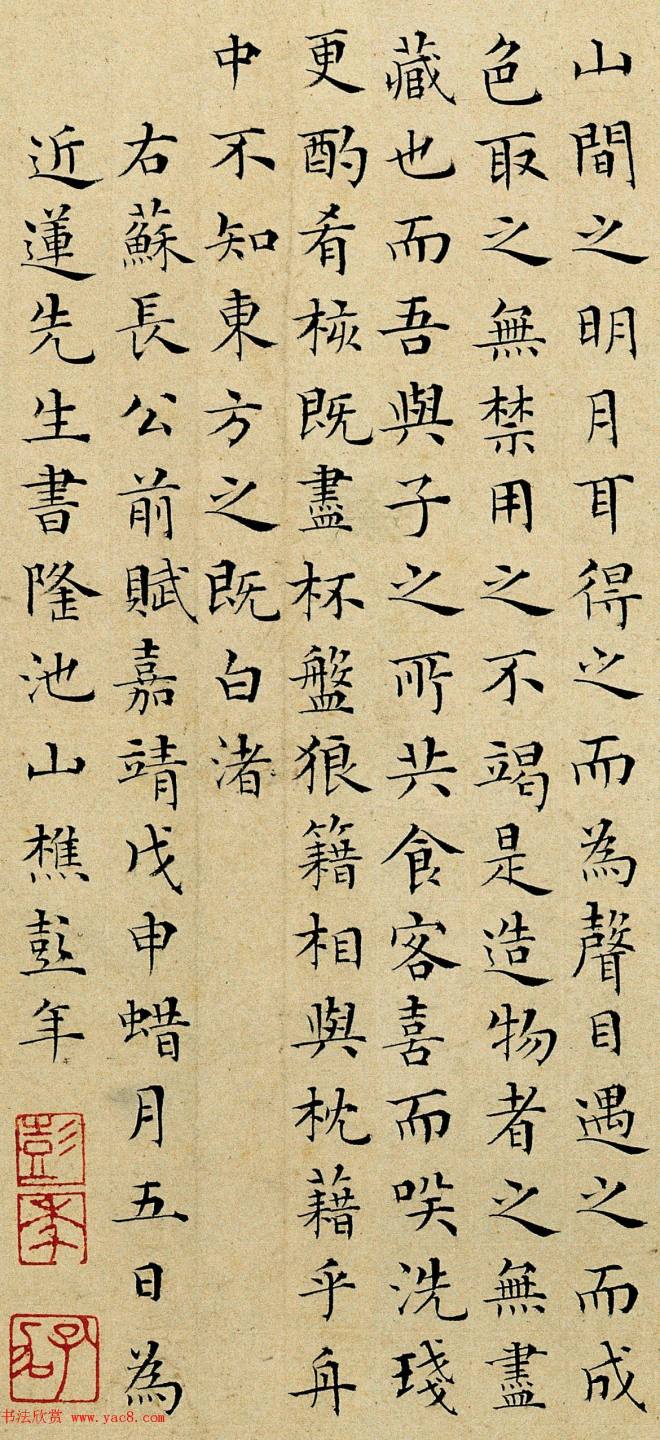 山間之明月耳得之而為聲目遇之而成
色取之無禁用之不竭是造物者之無盡
藏也而吾與子之所共食客喜而咲洗琖
更酌肴核既盡杯盤狼籍相與枕藉乎舟
中不知東方之既白渚
右蘇長公前賦嘉靖戊申蜡月五日為
近蓮先生書隆池山樵彭年
彭年
书法欣赏 www.yac8.com